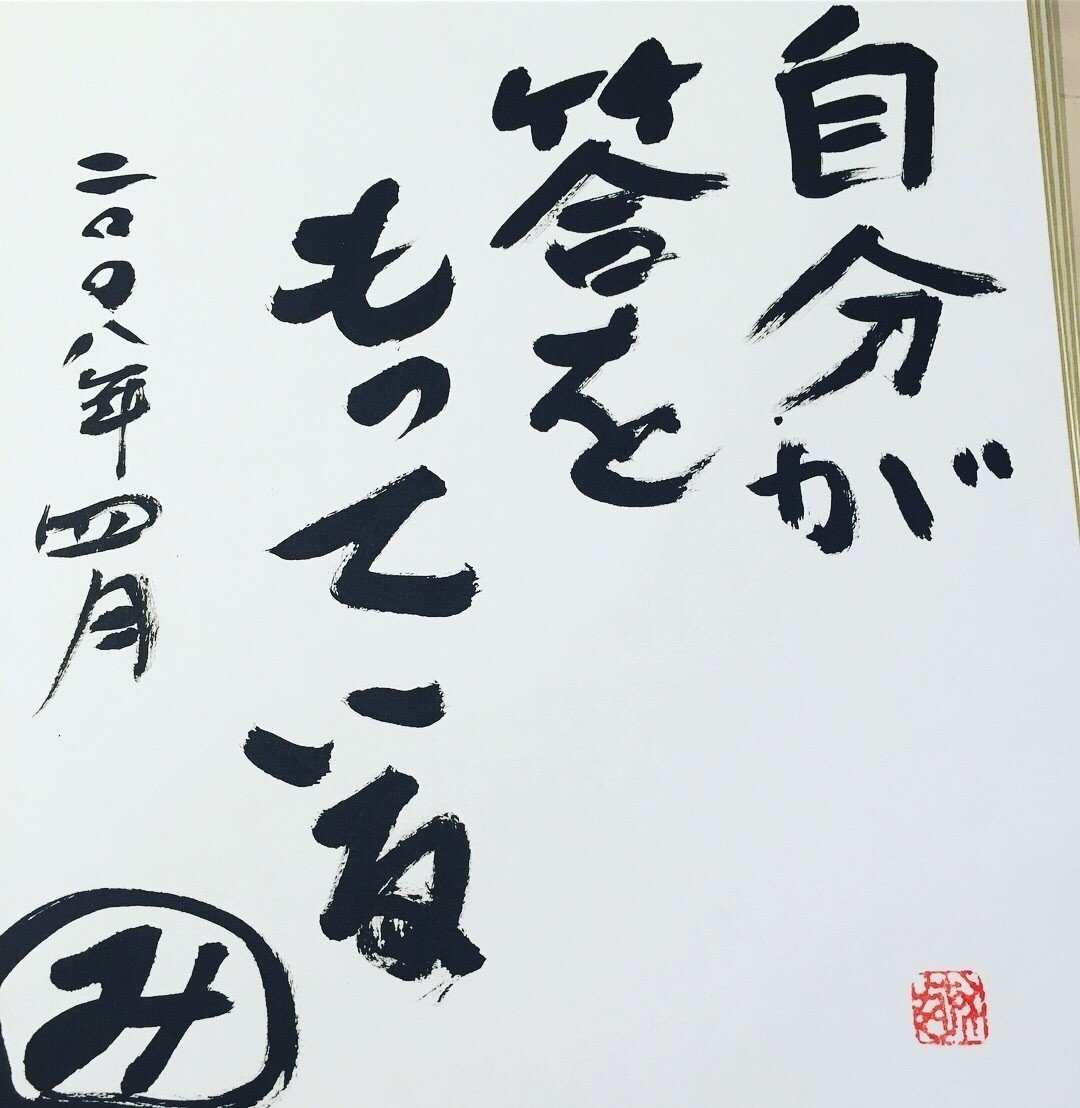 自分が
答を
もっている
二〇〇八年四月
み